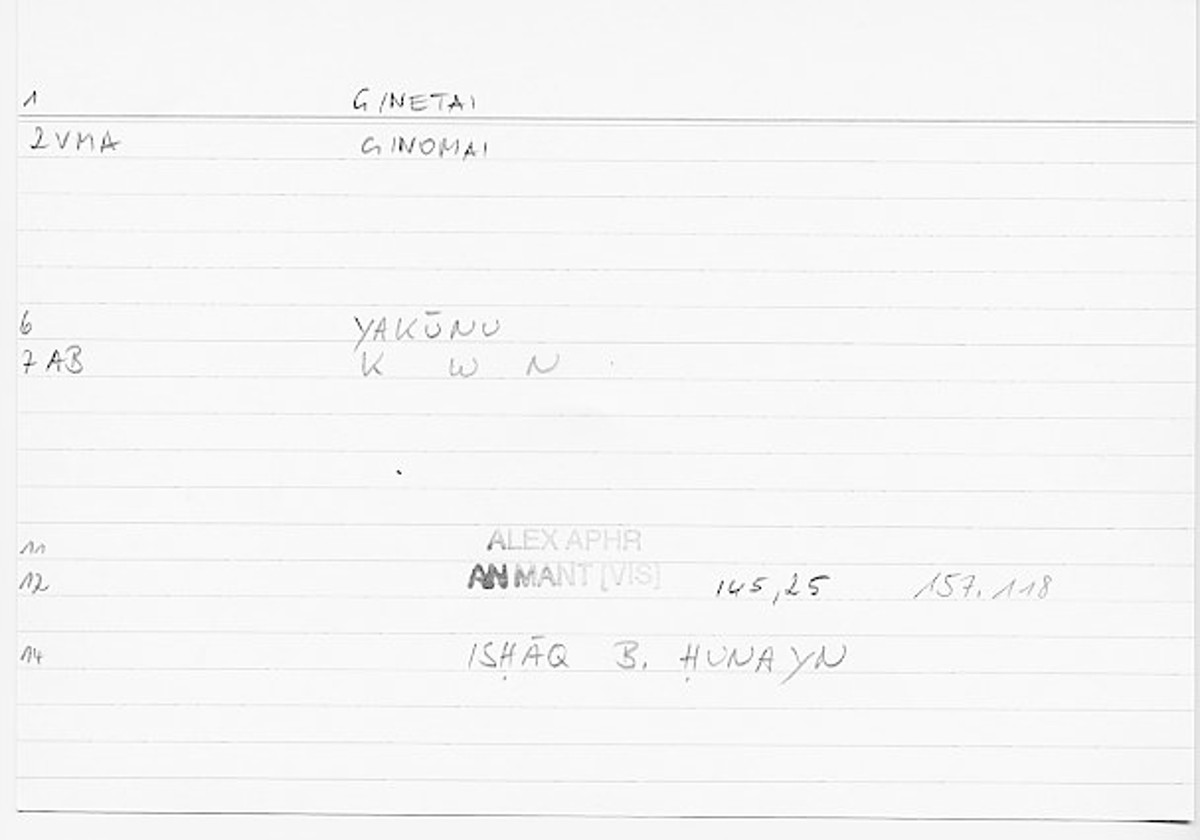 1 GINETAI
2 VMA GINOMAI
6 YAKŪNU
7 AB K W N
11 ALEX APHR
12 AN MANT [VIS] 145,25 157.118
14 ISḤĀQ B. ḤUNAYN